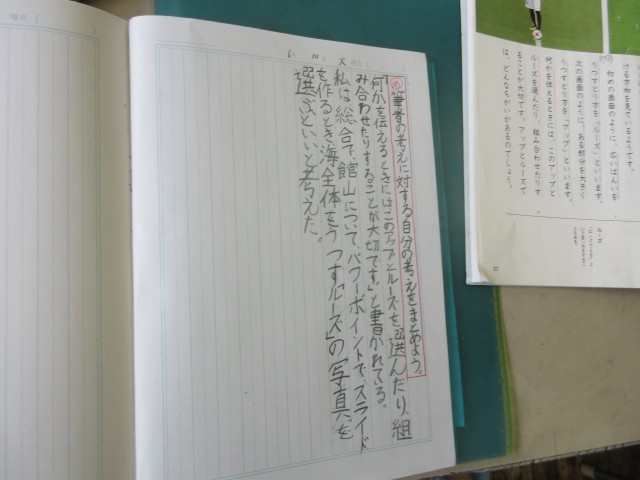 ける方向を見ているようです。
初めの画面のように、広いはんいを
うつすとり方を「ルーズ」といいます。
次の画面のように、ある部分を大きく
うつすとり方を「アップ」といいます。
何かを伝えるときには、このアップと
ルーズを選んだり、組み合わせたりす
ることが大切です。アップとルーズで
は、どんなちがいがあるのでしょう。
ルーズ
57
火
め 筆者の考えに対する自分の考えをまとめよう。
「何かを伝えるときにはこのアップとルーズを選んだり、組
み合わせたりすることが大切です。」と書かれてる。
私は総合で、館山について、パワーポイントで、スライド
を作るとき海全体をうつす「ルーズ」の写真を
選ぶといいと考えた。